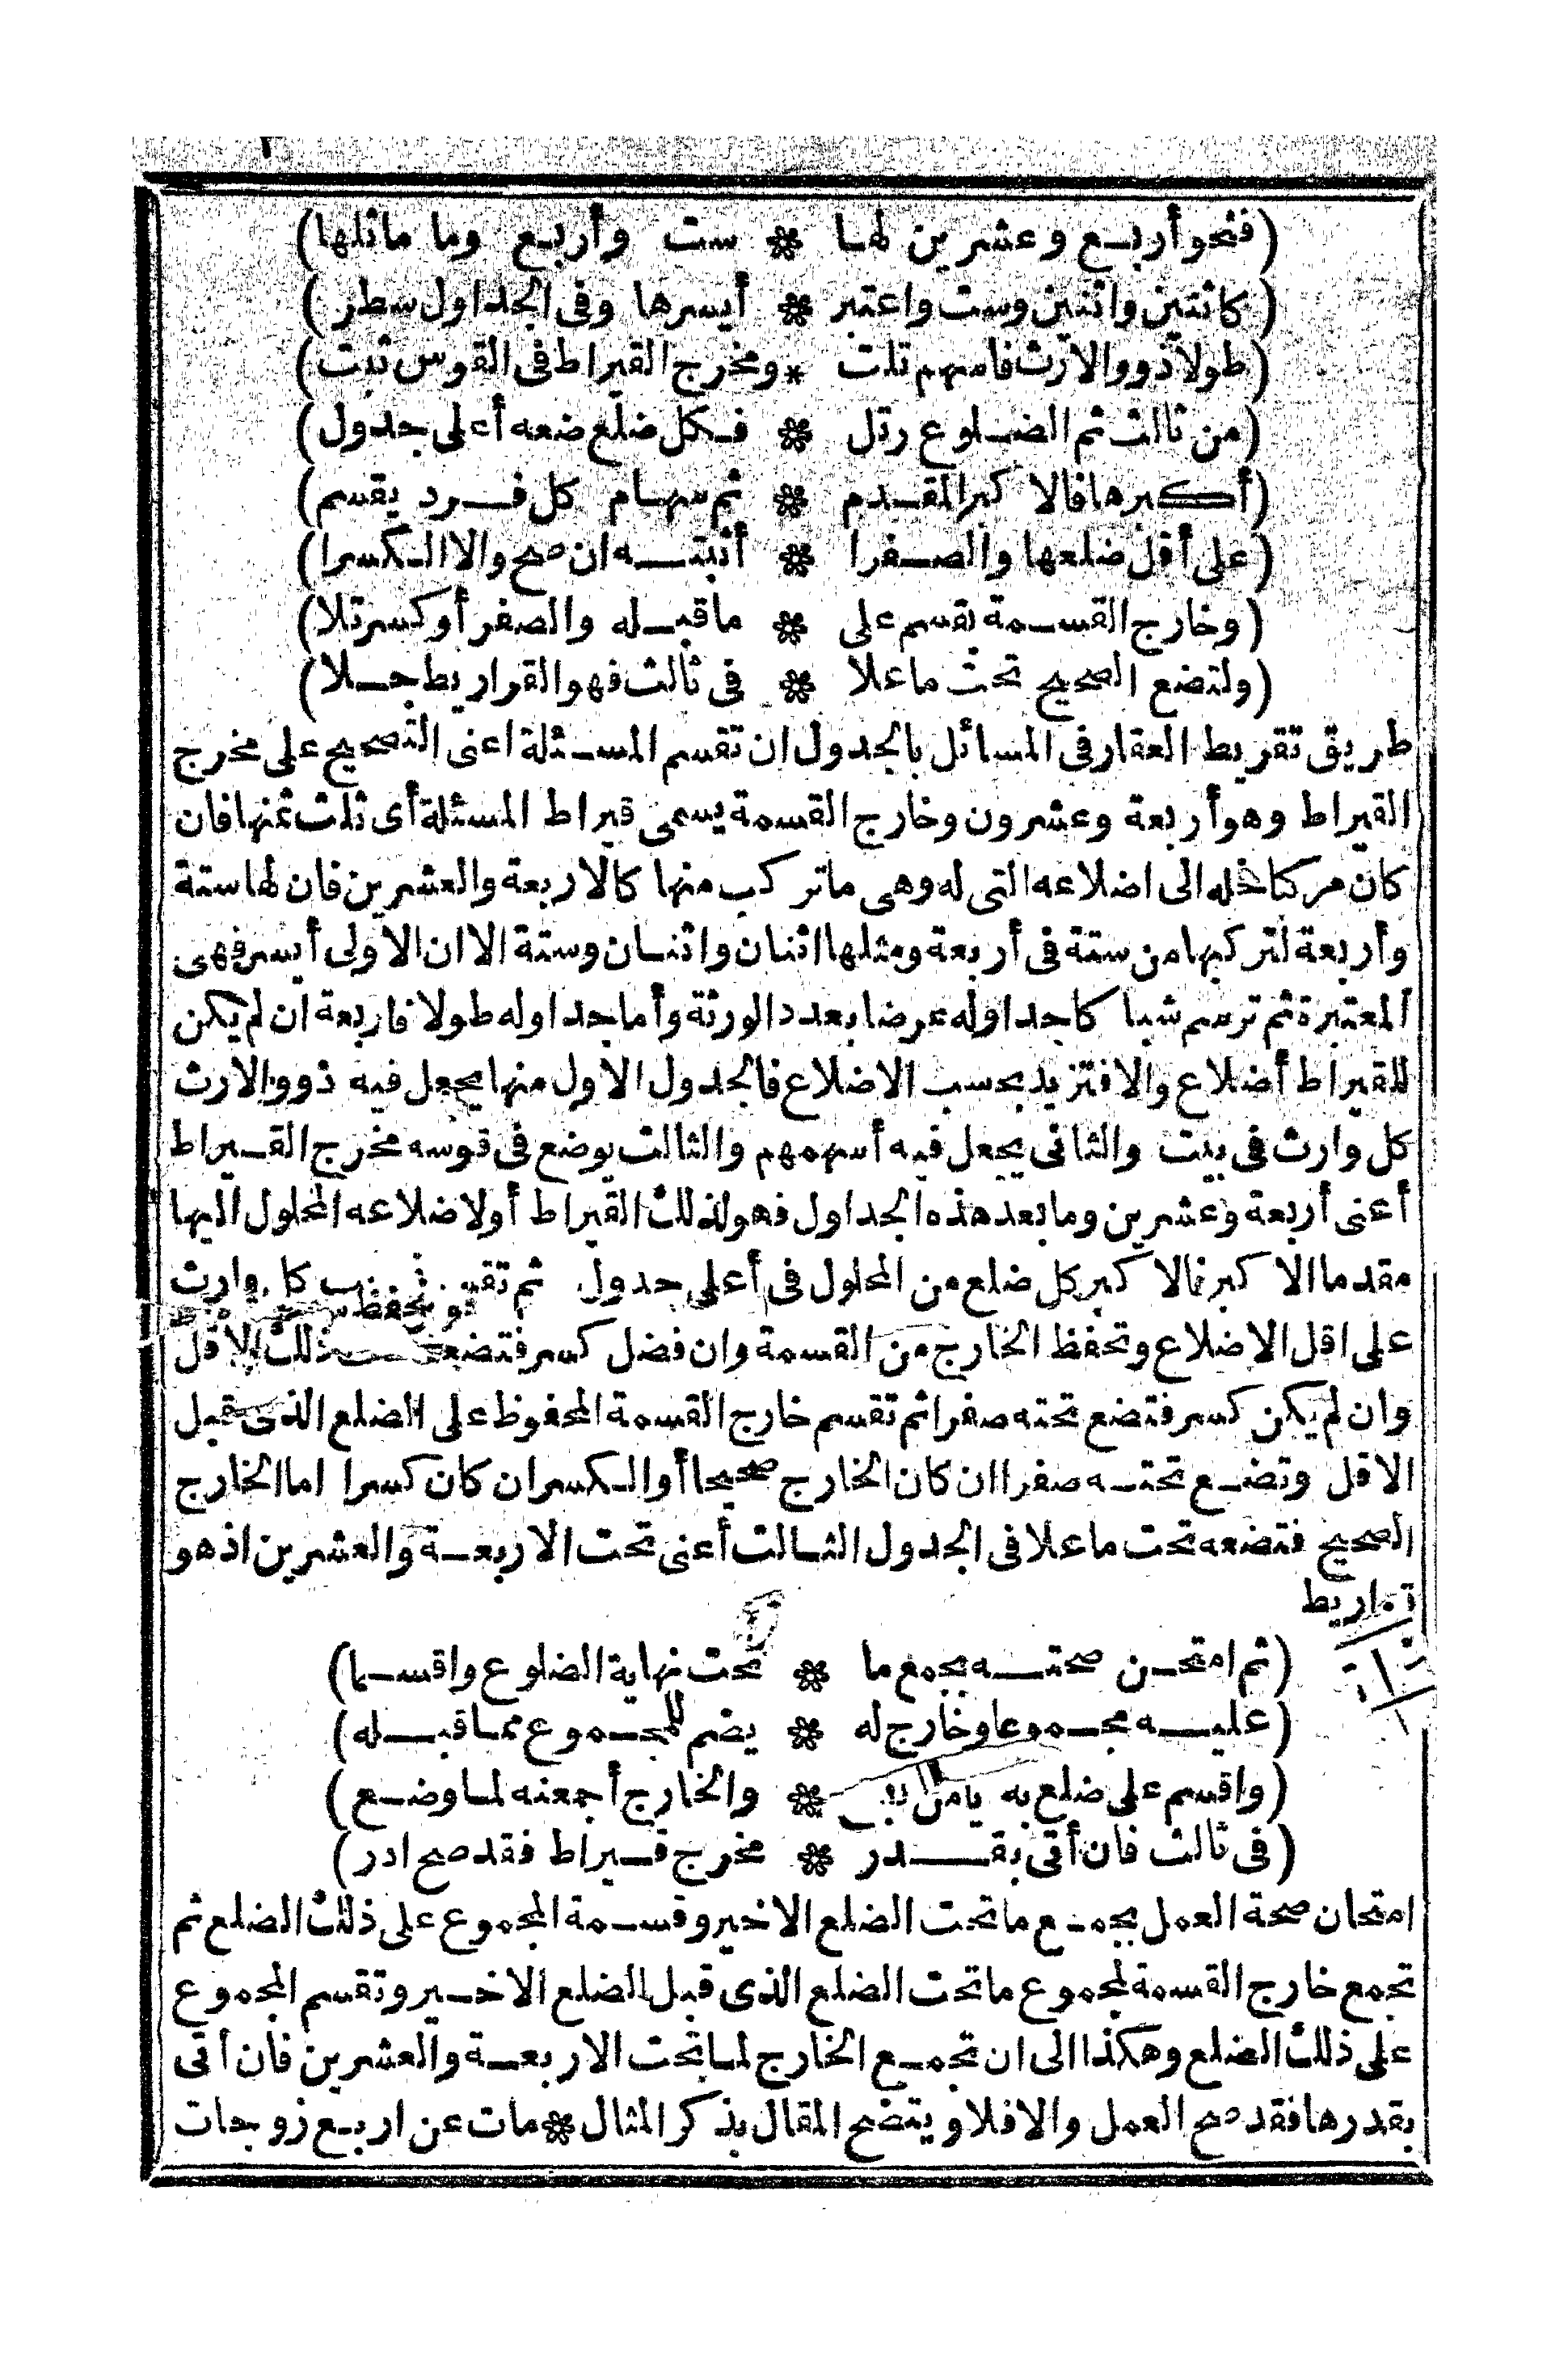 (فنحو أربع وعشرين لها * ست وأربع وما ماثلها)
(كاثنين واثنين وست واعتبر * أيسرها وفى الجداول سطر)
(طولا ذوو الارث فاسهم تلت * ومخرج القيراط فى القوس ثبت)
(من ثالث ثم الضلوع رتل * فكل ضلع ضعه أعلى جدول)
(أكبرها فالاكبر المقدم * ثم سهام كل فرد يقسم)
(على أقل ضلعها والصفرا * أثبته ان صح والا الكسرا)
(وخارج القسمة تقسم على * ماقبله والصفر أو كسر تلا)
(ولتضع الصحيح تحت ماعلا * فى ثالث فهو القراريط جلا)
طريق تقريط العقار فى المسائل بالجدول ان تقسم المسئلة اعنى التصحيح على مخرج
القيراط وهو أربعة وعشرون وخارج القسمة يسمى قيراط المسئلة أى ثلث ثمنها فان
كان مركبا فحله الى اضلاعه التى له وهى ماتركب منها كالاربعة والعشرين فان لها ستة
وأربعة لتركبها من ستة فى أربعة ومثلها اثنان واثنان وستة الا ان الاولى أيسر فهى
المعتبرة ثم ترسم شباكا جداوله عرضا بعدد الورثة وأما جداوله طولا فاربعة ان لم يكن
للقيراط أضلاع والا فتزيد بحسب الاضلاع فالجدول الاول منها يجعل فيه ذوو الارث
كل وارث فى بيت والثانى يجعل فيه أسهمهم والثالث يوضع فى قوسه مخرج القيراط
أعنى أربعة وعشرين وما بعد هذه الجداول فهو لذلك القيراط أولاضلاعه المحلول اليها
مقدما الاكبر فالاكبر كل ضلع من المحلول فى أعلى جدول ثم وارث
على اقل الاضلاع وتحفظ الخارج من القسمة وان فضل كسر فتضعه ذلك الاقل
وان لم يكن كسر فتضع تحته صفرا ثم تقسم خارج القسمة المحفوظ على الضلع الذى قبل
الاقل وتضع تحته صفرا ان كان الخارج صحيحا أو الكسر ان كان كسرا اما الخارج
الصحيح فتضعه تحت ماعلا فى الجدول الثالث أعنى تحت الاربعة والعشرين اذ هو
قراريط
(ثم امتحن صحته بجمع ما * تحت نهاية الضلوع واقسما)
(عليه مجموعا وخارج له * يضم للمجموع مما قبله)
(واقسم على ضلع به يامن * والخارج أجمعنه لما وضع)
(فى ثالث فان أتى بقدر * مخرج قيراط فقد صح ادر)
امتحان صحة العمل بجمع ماتحت الضلع الاخير وقسمة المجموع على ذلك الضلع ثم
تجمع خارج القسمة لمجموع ماتحت الضلع الذى قبل الضلع الاخير وتقسم المجموع
على ذلك الضلع وهكذا الى ان تجمع الخارج لما تحت الاربعة والعشرين فان أتى
بقدرها فقد صح العمل والا فلا ويتضح المقال بذكر المثال * مات عن اربع زوجات